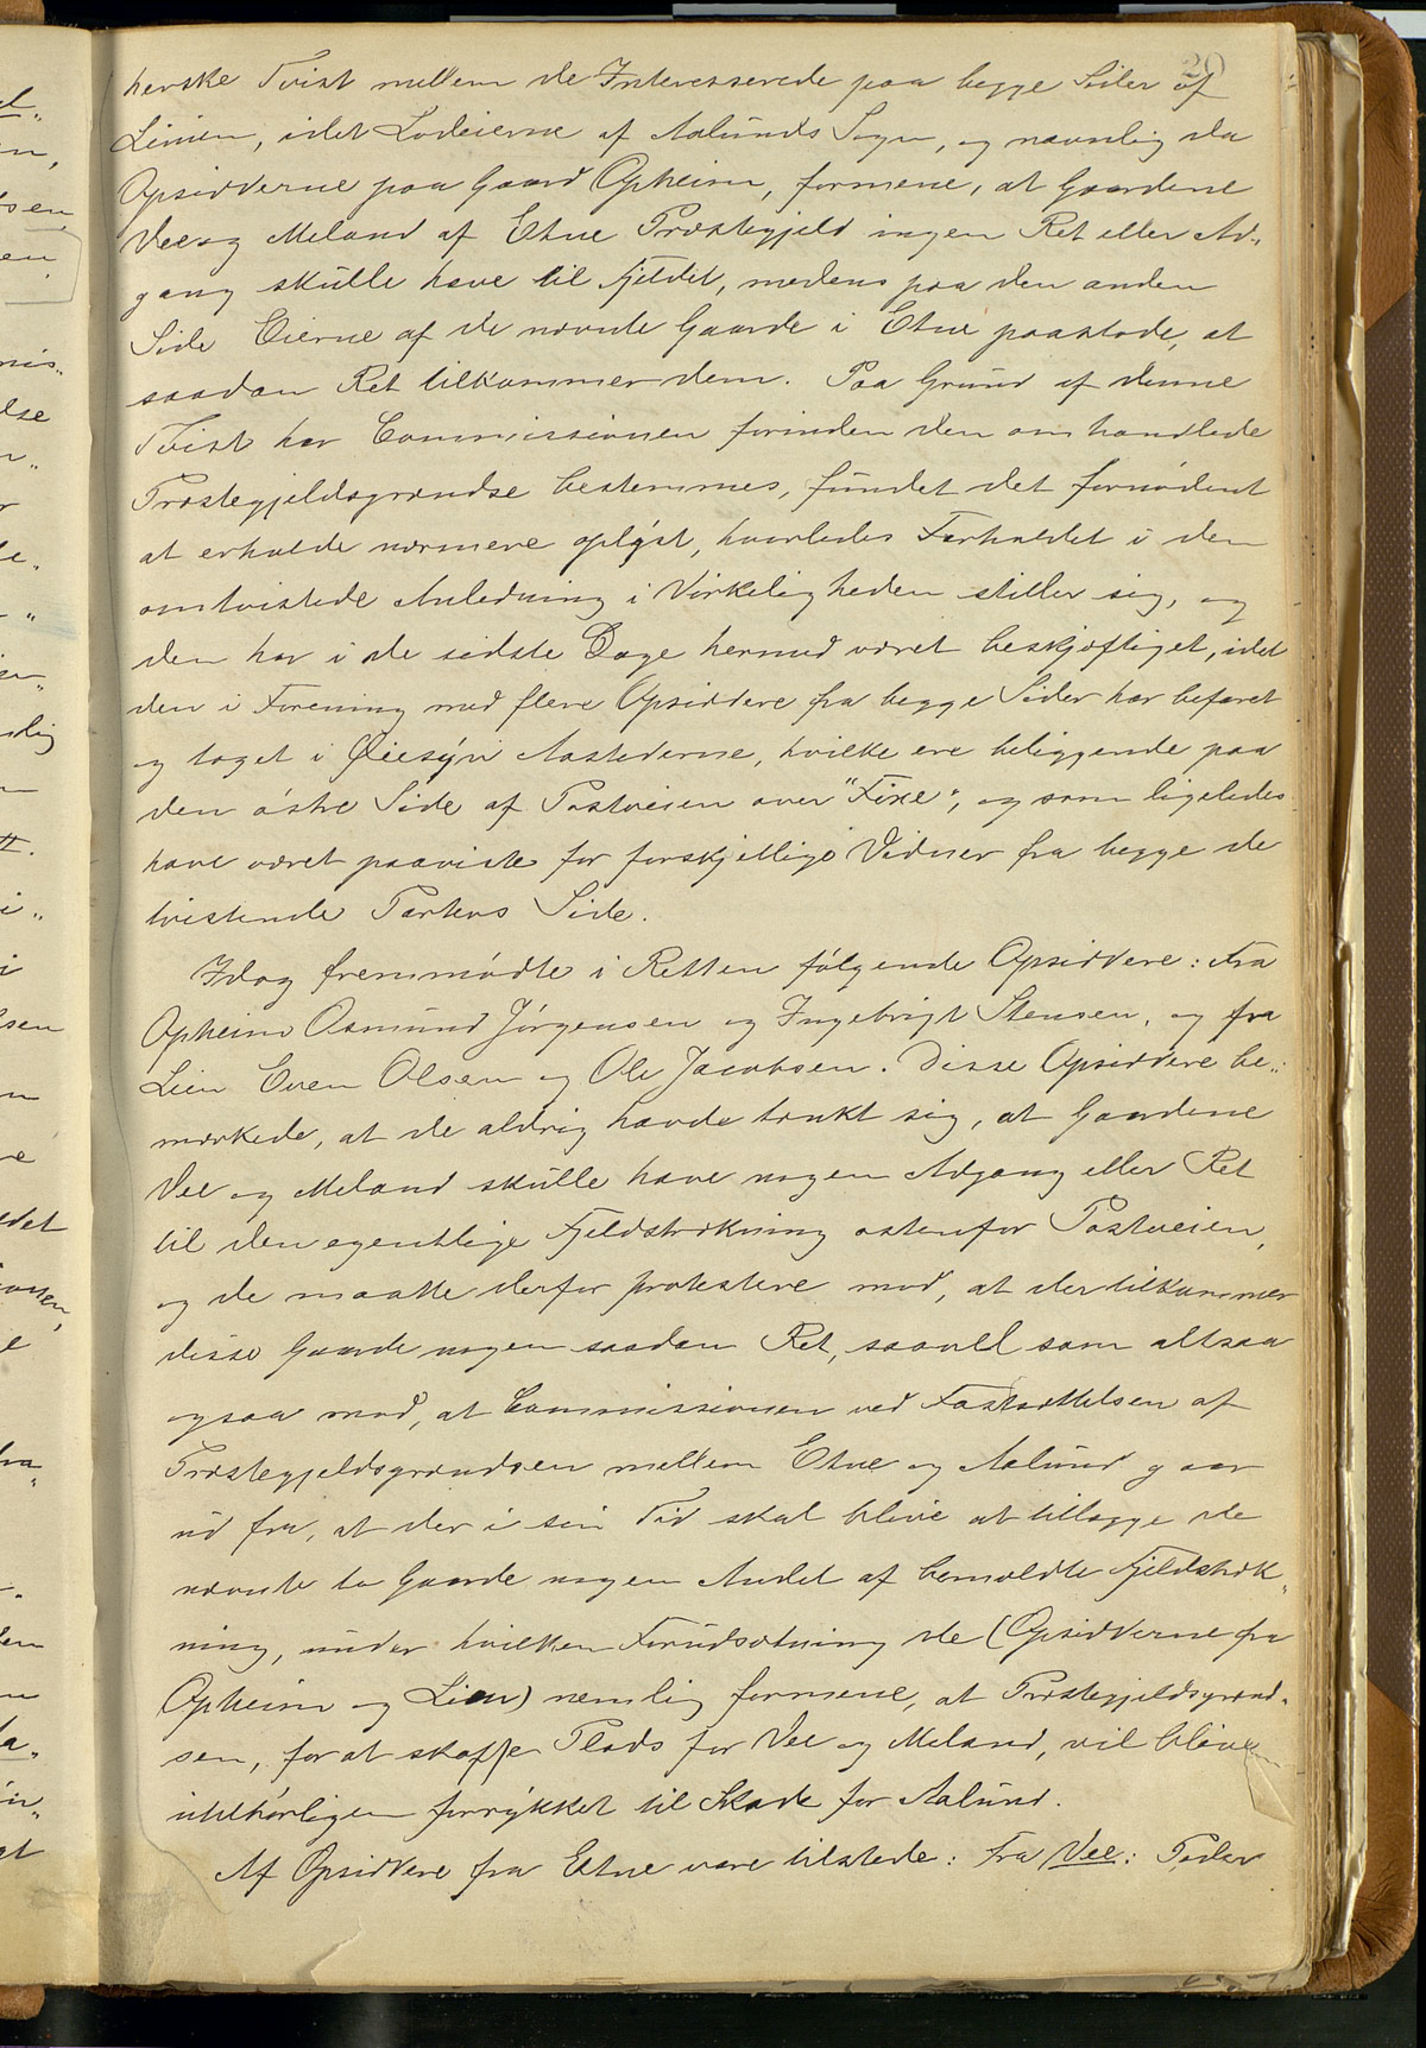 20
herske Tvist mellem de Interesserede paa begge Sider af
Linien, idet Lodeierne af Aalunds Sogn, og navnlig da
Opsidderne paa Gaard Opheim, formene, at Gaardene
Vee og Meland af Etne Præstegjeld ingen Ret eller Ad„
gang skulle have til Fjeldet, medens paa den anden
Side Eierne af de nævnte Gaarde i Etne paastode, at
saadan Ret tilkommer dem. Paa Grund af denne
Tvist har Commissionen forinden den omhandlede
Præstegjeldsgrændse bestemmes, fundet det fornødent
at erholde nærmere oplyst, hvorledes Forholdet i den
omtvistede Anledning i Virkeligheden stiller sig, og
den har i de sidste Dage hermed været beskjæftiget, idet
den i Forening med flere Opsiddere fra begge Sider har befaret
og taget i Øiesyn Aastederne, hvilke ere beliggende paa
den østre Side af Postveien over "Fixe", og som ligeledes
have været paaviste for forskjellige Vidner fra begge de
tvistende Parters Side.
Idag fremmødte i Retten følgende Opsiddere: Fra
Opheim Osmund Jørgensen og Ingebrigt Stensen, og fra
Lien Even Olsen og Ole Jacobsen. Disse Opsiddere be„
mærkede, at de aldrig havde tænkt sig, at Gaardene
Vee og Meland skulle have nogen Adgang eller Ret
til den egentlige Fjeldstrækning østenfor Postveien,
og de maatte derfor protestere mod, at der tilkommer
disse Gaarde nogen saadan Ret, saavel som altsaa
ogsaa mod, at Commissionen ved Fastsættelsen af
Præstegjeldsgrændsen mellem Etne og Aalund gaar
ud fra, at der i sin Tid skal blive at tillægge de
nævnte to Gaarde nogen Andel af bemeldte Fjeldstræk„
ning, under hvilken Forudsætning de (Opsidderne fra
Opheim og Lien) nemlig formene, at Præstegjeldsgrænd„
sen, for at skaffe Plads for Vee og Meland, vil blive
utilbørligen forrykket til Skade for Aalund.
Af Opsiddere fra Etne vare tilstede: Fra Vee: Peder